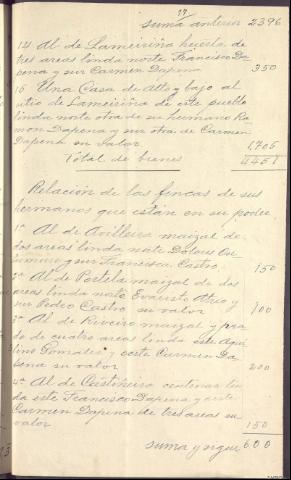 17
suma anterior 2396
14 Al de Lameiriña huerta de
tres areas linda norte Francisco Da
pena y sur Carmen Dapena 350
15 Una Casa de Alto y bajo al
sitio de Lameiriña de este pueblo
linda norte otra de su hermano Ra
mon Dapena y sur otra de Carmen
Dapena en valor 1,705
Total de bienes 4451
Relación de las fincas de sus
hermanos que están en su poder
1ª Al de Avilleira maizal de
dos areas linda norte Dolores
y sur Francisca Castro 150
2ª Al de Portela maizal de dos
areas linda norte Evaristo Atreo y
sur Pedro Castro su valor 100
3ª Al de Riveiro maizal y pra
do de cuatro areas linda este Aqui
lino Gonzales y oeste Carmen Da
pena su valor 200
4ª Al de Castiñeiro centenar lin
da este Francisco Dapena y oeste
Carmen Dapena de tres areas su
valor 150
suma y sigue 600